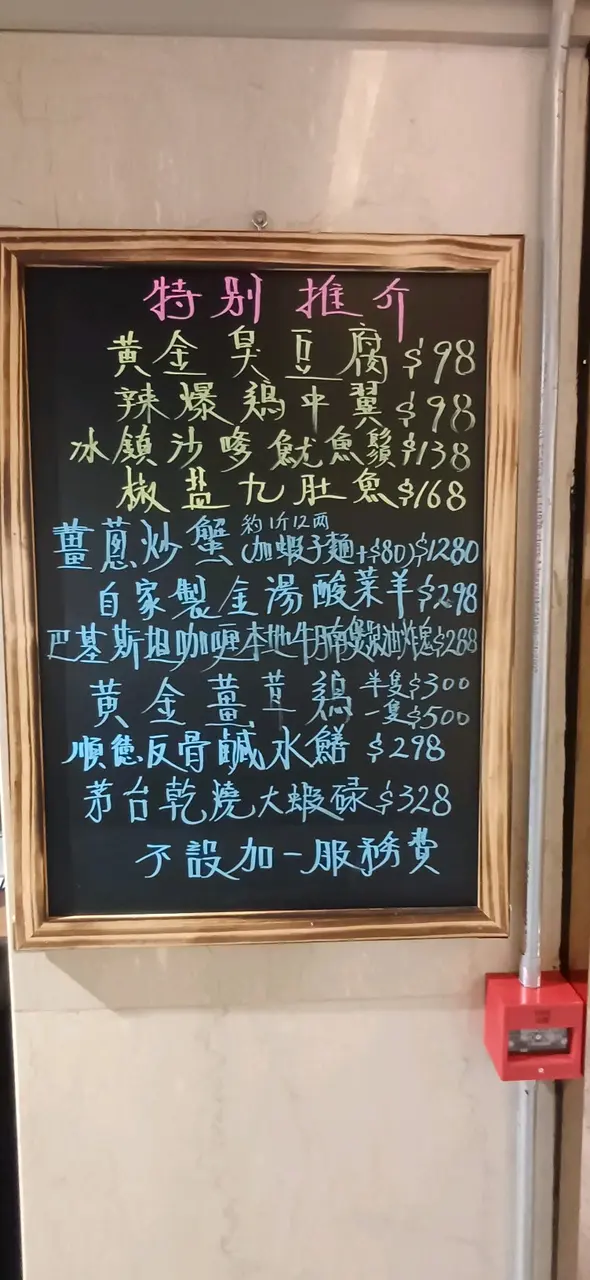 特别推介
黄金臭豆腐$98
辣爆鷄中翼$98
冰鎮沙嗲魷魚鬚$138
椒盐九肚魚$168
薑蔥炒蟹約1斤12両(加蝦子麵+$80)$1280
自家製金湯酸菜羊$298
巴基斯坦咖喱本地牛腩煲跟油炸鬼$288
黄金薑茸鷄半隻$300
一隻$500
順德反骨鹹水鱔$298
茅台乾燒大蝦碌$328
不設加一服務費